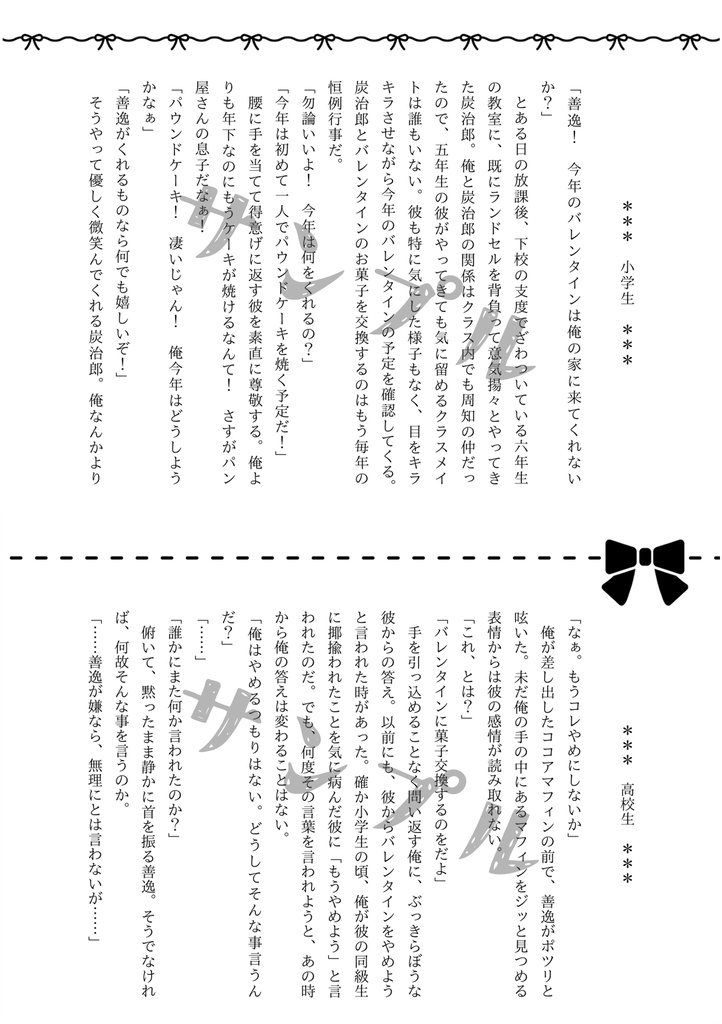 ＊＊＊　小学生　＊＊＊
「善逸！　今年のバレンタインは俺の家に来てくれない
か？」
　とある日の放課後、下校の支度でざわついている六年生
の教室に、既にランドセルを背負って意気揚々とやってき
た炭治郎。俺と炭治郎の関係はクラス内でも周知の仲だっ
たので、五年生の彼がやってきても気に留めるクラスメイ
トは誰もいない。彼も特に気にした様子もなく、目をキラ
キラさせながら今年のバレンタインの予定を確認してくる。
炭治郎とバレンタインのお菓子を交換するのはもう毎年の
恒例行事だ。
「勿論いいよ！　今年は何をくれるの？」
「今年は初めて一人でパウンドケーキを焼く予定だ！」
　腰に手を当てて得意げに返す彼を素直に尊敬する。俺よ
りも年下なのにもうケーキが焼けるなんて！　さすがパン
屋さんの息子だなぁ！
「パウンドケーキ！　凄いじゃん！　俺今年はどうしよう
かなぁ」
「善逸がくれるものなら何でも嬉しいぞ！」
　そうやって優しく微笑んでくれる炭治郎。俺なんかより
サンプル
＊＊＊　高校生　＊＊＊
「なぁ。もうコレやめにしないか」
　俺が差し出したココアマフィンの前で、善逸がポツリと
呟いた。未だ俺の手の中にあるマフィンをジッと見つめる
表情からは彼の感情が読み取れない。
「これ、とは？」
「バレンタインに菓子交換するのをだよ」
　手を引っ込めることなく問い返す俺に、ぶっきらぼうな
彼からの答え。以前にも、彼からバレンタインをやめよう
と言われた時があった。確か小学生の頃、俺が彼の同級生
に揶揄われたことを気に病んだ彼に「もうやめよう」と言
われたのだ。でも、何度その言葉を言われようと、あの時
から俺の答えは変わることはない。
「俺はやめるつもりはない。どうしてそんな事言うん
だ？」
「……」
「誰かにまた何か言われたのか？」
　俯いて、黙ったまま静かに首を振る善逸。そうでなけれ
ば、何故そんな事を言うのか。
「……善逸が嫌なら、無理にとは言わないが……」
サンプル